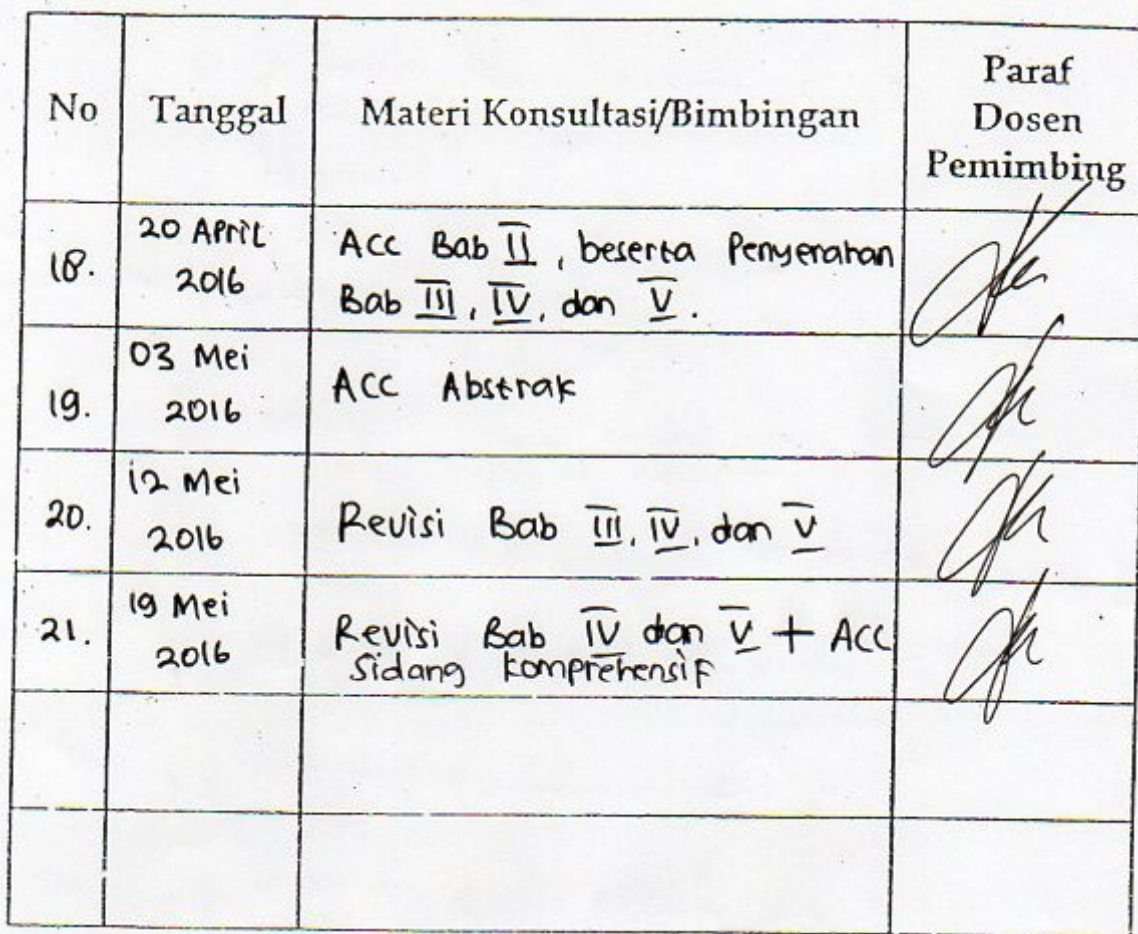 No Tanggal Materi Konsultasi/Bimbingan Paraf
Dosen
Pemimbing
18. 20 April
2016
Acc Bab II, beserta Penyerahan
Bab III, IV, dan V.
19. 03 Mei
2016
Acc Abstrak
20. 12 Mei
2016
Revisi Bab III, IV, dan V
21. 19 Mei
2016
Revisi Bab IV dan V + Acc
Sidang komprehensif